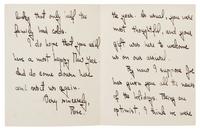 that only if the
family
I do hope that you will
have a most happy New Year
and do come down here
and visit us again.
Very sincerely,
the year. As usual you were
most thoughtful, and your
gift was here to welcome
us on our arrival.
By now I suppose
has given you all the
of the holidays. Being an
optimist, I find we were